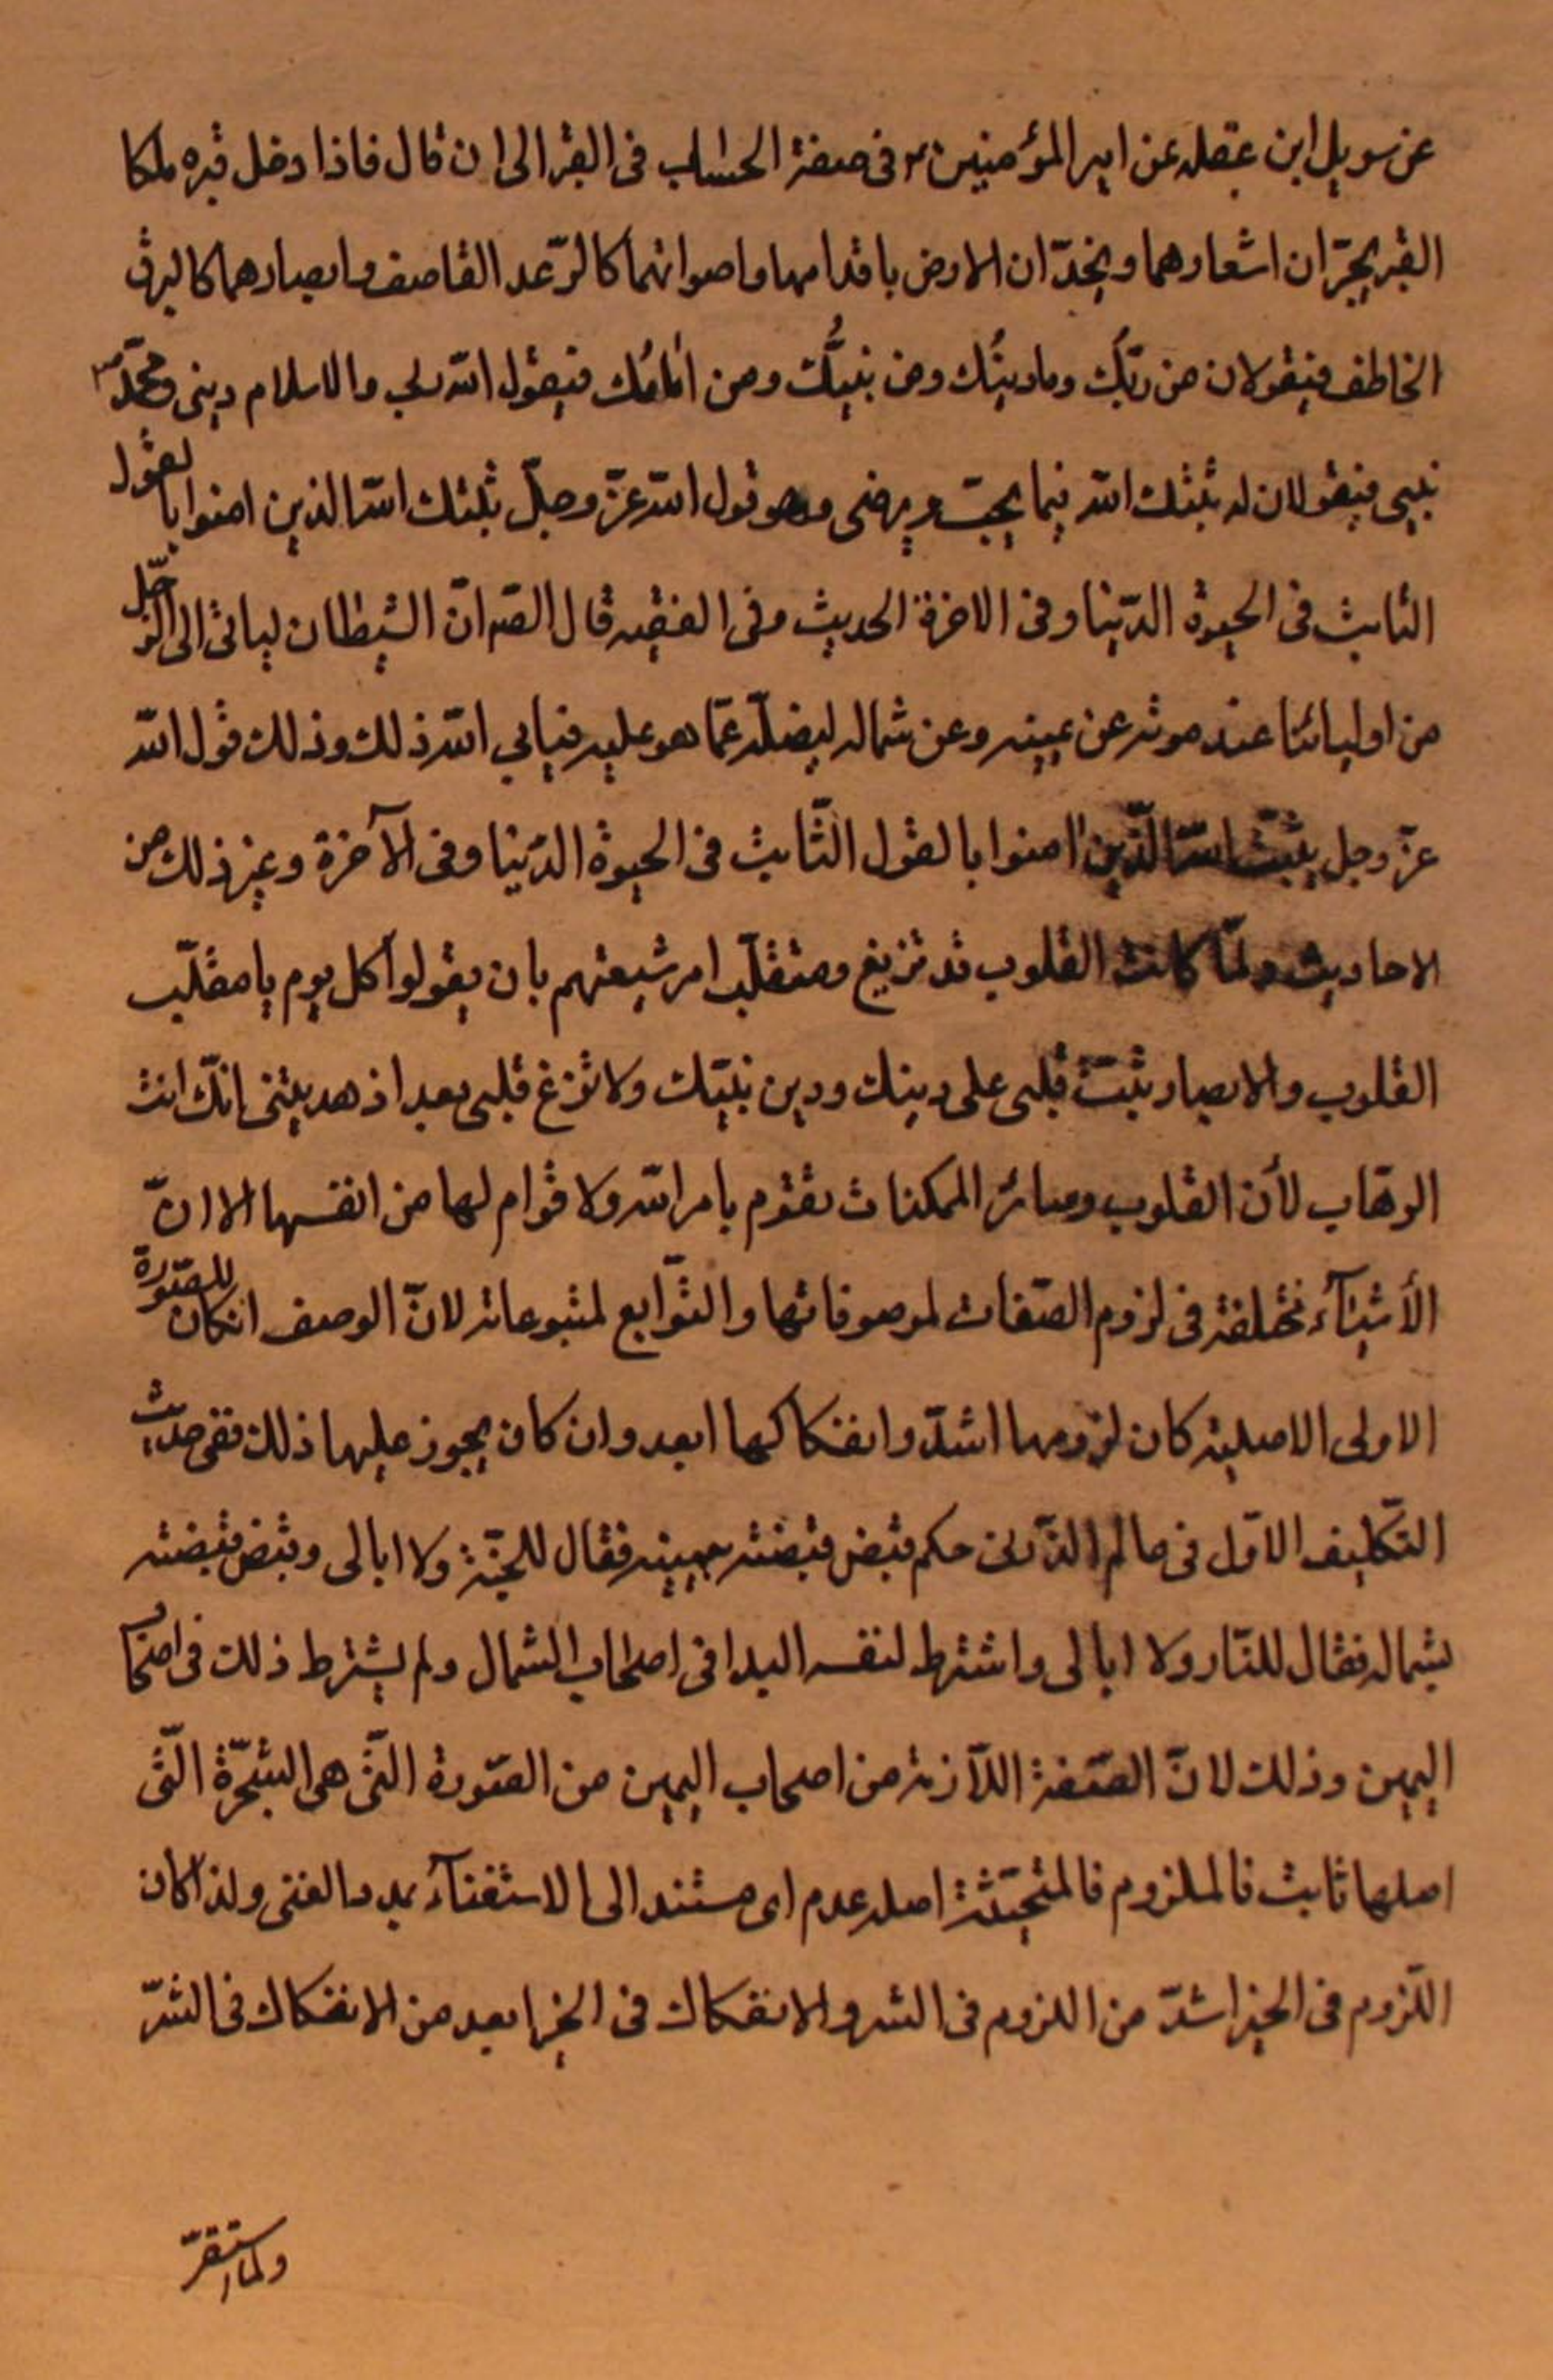 عن سويل ابن عقله عن امير المؤمنين ع فى صفة الحساب فى القبر الى ان قال فاذا دخل قبره ملكا
القبر يجرّان اشعارهما ويخدّان الارض باقدامهما واصواتهما كالرّعد القاصف وابصارهما كالبرق
الخاطف فيقولان من ربّك وما دينُك ومن نبيُّك ومن امامُك فيقول الله ربى والاسلام دينى ومحمّد ص
نبيى فيقولان له ثبتك الله فيما يحبّ ويرضى وهو قول الله عزّ وجلّ يثبت الله الذين امنوا بالقول
الثابت فى الحيوة الدّينا وفى الاخرة الحديث وفى الفقيه قال الصّ انّ الشيطان لياتى الى الرّجل
من اوليائنا عند موته عن يمينه وعن شماله ليضلّه عمّا هو عليه فيابى الله ذلك وذلك قول الله
عزّ وجل يثبّت الله الّذين امنوا بالقول الثّابت فى الحيوة الدّينا وفى الآخرة وغير ذلك من
الاحاديث ولمّا كانت القلوب قد تزيغ وتتقلّب امر شيعتهم بان يقولوا كل يوم يا مقلّب
القلوب والابصار ثبّت قلبى على دينك ودين نبيّك ولا تزغ قلبى بعد اذ هديتنى انّك انت
الوهّاب لأن القلوب وسائر الممكنات تقوم بامر الله ولا قوام لها من انفسها الا انّ
الأشيآء مختلفة فى لزوم الصّفات لموصوفاتها والتّوابع لمتبوعاته لانّ الوصف انكان للصّورة
الاولى الاصلية كان لزومها اشدّ وانفكاكها ابعد وان كان يجوز عليها ذلك ففى حديث
التّكليف الاوّل فى عالم الذّر فى حكم قبض قبضته بيمينه فقال للجنّة ولا ابالى وقبض قبضته
بشماله فقال للنّار ولا ابالى واشترط لنفسه البدا فى اصحاب الشمال ولم يشترط ذلك فى اصحاب
اليمين وذلك لانّ الصّفة اللّازمة من اصحاب اليمين من الصّورة الّتى هى الشجّرة الّتى
اصلها ثابت فالملزوم فالمتجثّثة اصله عدم اى مستند الى الاستغنآء بمدد الغنى ولذا كان
اللّزوم فى الخير اشدّ من اللزوم فى الشر والانفكاك فى الخير ابعد من الانفكاك فى الشرّ
ولما استقرّ